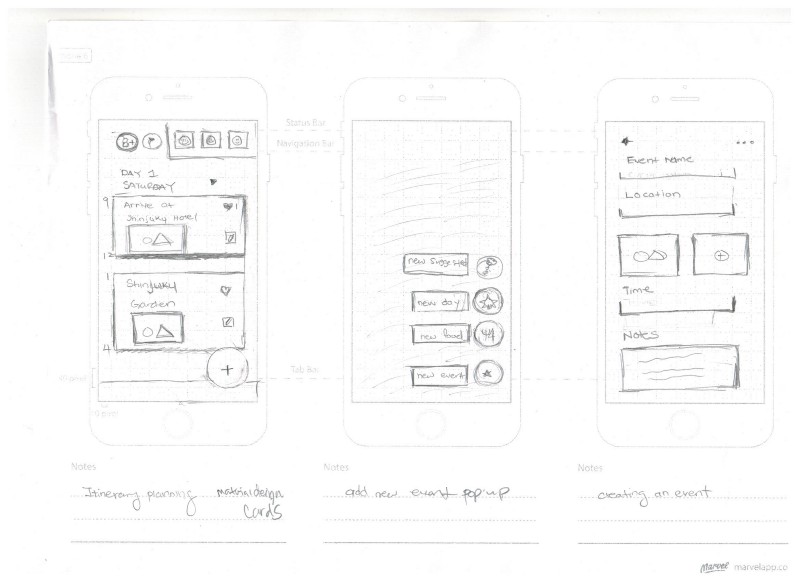 Status Bar
Navigation Bar
DAY 1
SATURDAY
9
Arrive at
Shinjuku Hotel
1
12
1
Shinjuku
Garden
4
+
Tab Bar
new suggested
new day
new food
new event
Event Name
Location
+
Time
Notes
Notes
Itinerary planning material design
cards
Notes
add new event pop-up
Notes
creating an event
Marvel marvelapp.co